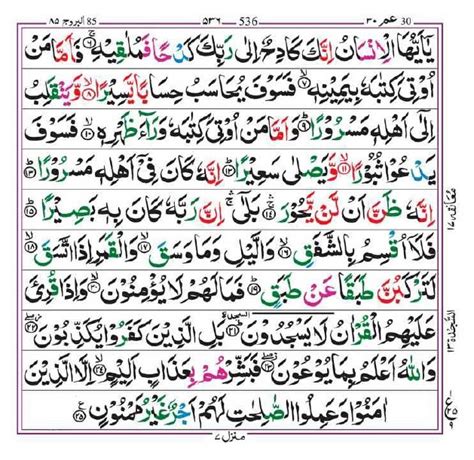 30 عمر ۳۰ 536 ۵۳۶ 85 البروج ۸۵
يٰٓاَيُّهَا الْاِنْسَانُ اِنَّكَ كَادِحٌ اِلٰى رَبِّكَ كَدْحًا فَمُلٰقِيْهِ ۶ فَاَمَّا مَنْ
اُوْتِىَ كِتٰبَهٗ بِيَمِيْنِهٖ ۷ فَسَوْفَ يُحَاسَبُ حِسَابًا يَّسِيْرًا ۸ وَّيَنْقَلِبُ
اِلٰٓى اَهْلِهٖ مَسْرُوْرًا ۹ وَاَمَّا مَنْ اُوْتِىَ كِتٰبَهٗ وَرَآءَ ظَهْرِهٖ ۱۰ فَسَوْفَ
يَدْعُوْا ثُبُوْرًا ۱۱ وَّيَصْلٰى سَعِيْرًا ۱۲ اِنَّهٗ كَانَ فِىْٓ اَهْلِهٖ مَسْرُوْرًا ۱۳
اِنَّهٗ ظَنَّ اَنْ لَّنْ يَّحُوْرَ ۱۴ بَلٰٓى اِنَّ رَبَّهٗ كَانَ بِهٖ بَصِيْرًا ۱۵
فَلَآ اُقْسِمُ بِالشَّفَقِ ۱۶ وَالَّيْلِ وَمَا وَسَقَ ۱۷ وَالْقَمَرِ اِذَا اتَّسَقَ ۱۸
لَتَرْكَبُنَّ طَبَقًا عَنْ طَبَقٍ ۱۹ فَمَا لَهُمْ لَا يُؤْمِنُوْنَ ۲۰ وَاِذَا قُرِئَ
عَلَيْهِمُ الْقُرْاٰنُ لَا يَسْجُدُوْنَ ۲۱ بَلِ الَّذِيْنَ كَفَرُوْا يُكَذِّبُوْنَ ۲۲
وَاللّٰهُ اَعْلَمُ بِمَا يُوْعُوْنَ ۲۳ فَبَشِّرْهُمْ بِعَذَابٍ اَلِيْمٍ ۲۴ اِلَّا الَّذِيْنَ
اٰمَنُوْا وَعَمِلُوا الصّٰلِحٰتِ لَهُمْ اَجْرٌ غَيْرُ مَمْنُوْنٍ ۲۵
منزل ۷
السجدة ۱۳